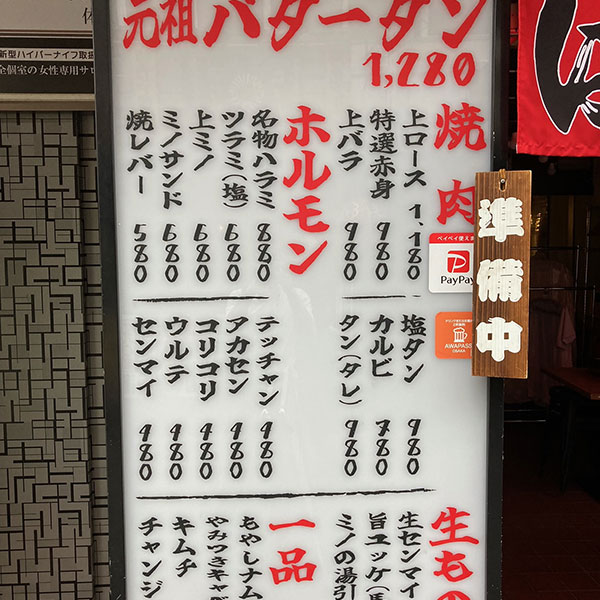 元祖バタータン
1,280
焼肉
上ロース 1,180
特選赤身 980
上バラ 980
塩タン 980
カルビ 780
タン(タレ) 980
ホルモン
名物ハラミ 880
ツラミ(塩) 680
上ミノ 680
ミノサンド 680
焼レバー 580
テッチャン 480
アカセン 480
コリコリ 480
ウルテ 480
センマイ 480
生もの
生センマイ
旨ユッケ(馬
ミノの湯引
一品
もやしナム
やみつきキャベ
キムチ
チャンジ
準備中
ペイペイ使えま
PayPay
AWAPASS
OSAKA
新型ハイパーナイフ取扱
全個室の女性専用サロ